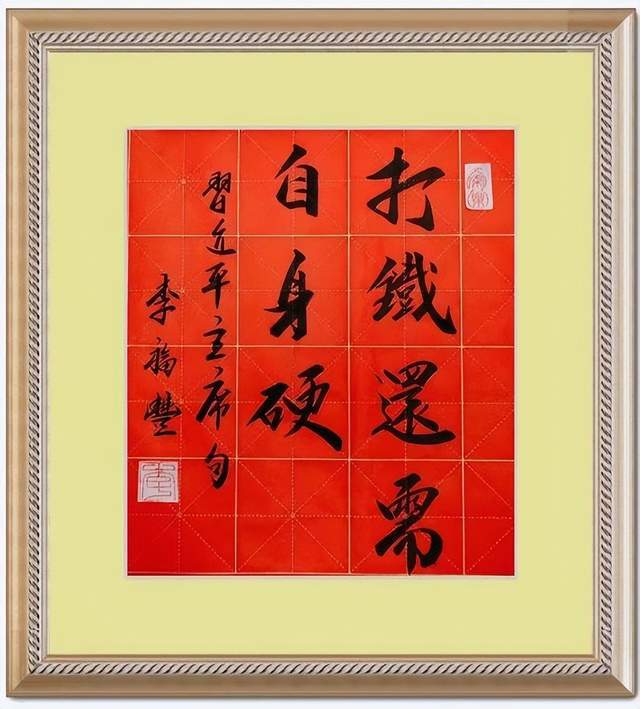 打鐵還需
自身硬
習近平主席句
李福豐